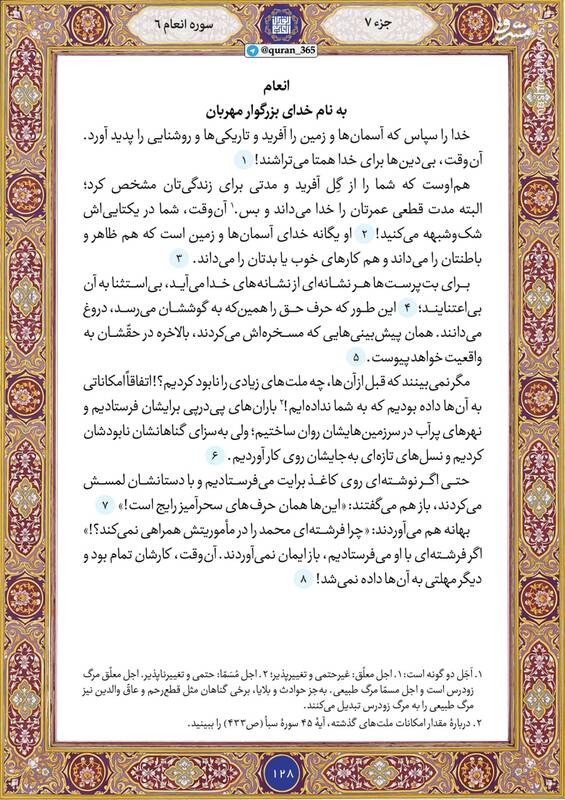 جزء ۷
سوره انعام ۶
@quran_365
مشرق
انعام
به نام خدای بزرگوار مهربان
خدا را سپاس که آسمان‌ها و زمین را آفرید و تاریکی‌ها و روشنایی را پدید آورد.
آن‌وقت، بی‌دین‌ها برای خدا همتا می‌تراشند! ۱
هم‌اوست که شما را از گِل آفرید و مدتی برای زندگی‌تان مشخص کرد؛
البته مدت قطعی عمرتان را خدا می‌داند و بس.۱ آن‌وقت، شما در یکتایی‌اش
شک‌وشبهه می‌کنید! ۲ او یگانه خدای آسمان‌ها و زمین است که هم ظاهر و
باطنتان را می‌داند و هم کارهای خوب یا بدتان را می‌داند. ۳
برای بت‌پرست‌ها هر نشانه‌ای از نشانه‌های خدا می‌آید، بی‌استثنا به آن
بی‌اعتنایند؛ ۴ این طور که حرف حق را همین‌که به گوششان می‌رسد، دروغ
می‌دانند. همان پیش‌بینی‌هایی که مسخره‌اش می‌کردند، بالاخره در حقّشان به
واقعیت خواهد پیوست. ۵
مگر نمی‌بینند که قبل از آن‌ها، چه ملت‌های زیادی را نابود کردیم؟! اتفاقاً امکاناتی
به آن‌ها داده بودیم که به شما نداده‌ایم!۲ باران‌های پی‌درپی برایشان فرستادیم و
نهرهای پرآب در سرزمین‌هایشان روان ساختیم؛ ولی به‌سزای گناهانشان نابودشان
کردیم و نسل‌های تازه‌ای به‌جایشان روی کار آوردیم. ۶
حتی اگر نوشته‌ای روی کاغذ برایت می‌فرستادیم و با دستانشان لمسش
می‌کردند، باز هم می‌گفتند: «این‌ها همان حرف‌های سحرآمیز رایج است!» ۷
بهانه هم می‌آوردند: «چرا فرشته‌ای محمد را در مأموریتش همراهی نمی‌کند؟!»
اگر فرشته‌ای با او می‌فرستادیم، باز ایمان نمی‌آوردند. آن‌وقت، کارشان تمام بود و
دیگر مهلتی به آن‌ها داده نمی‌شد! ۸
۱. أجَل دو گونه است: ۱. اجل معلّق: غیرحتمی و تغییرپذیر؛ ۲. اجل مُسَمّا: حتمی و تغییرناپذیر. اجل معلّق مرگ
زودرس است و اجل مسمّا مرگ طبیعی. به‌جز حوادث و بلایا، برخی گناهان مثل قطع‌رحم و عاقّ والدین نیز
مرگ طبیعی را به مرگ زودرس تبدیل می‌کنند.
۲. دربارهٔ مقدار امکانات ملت‌های گذشته، آیهٔ ۴۵ سورهٔ سبأ (ص۴۳۳) را ببینید.
۱۲۸